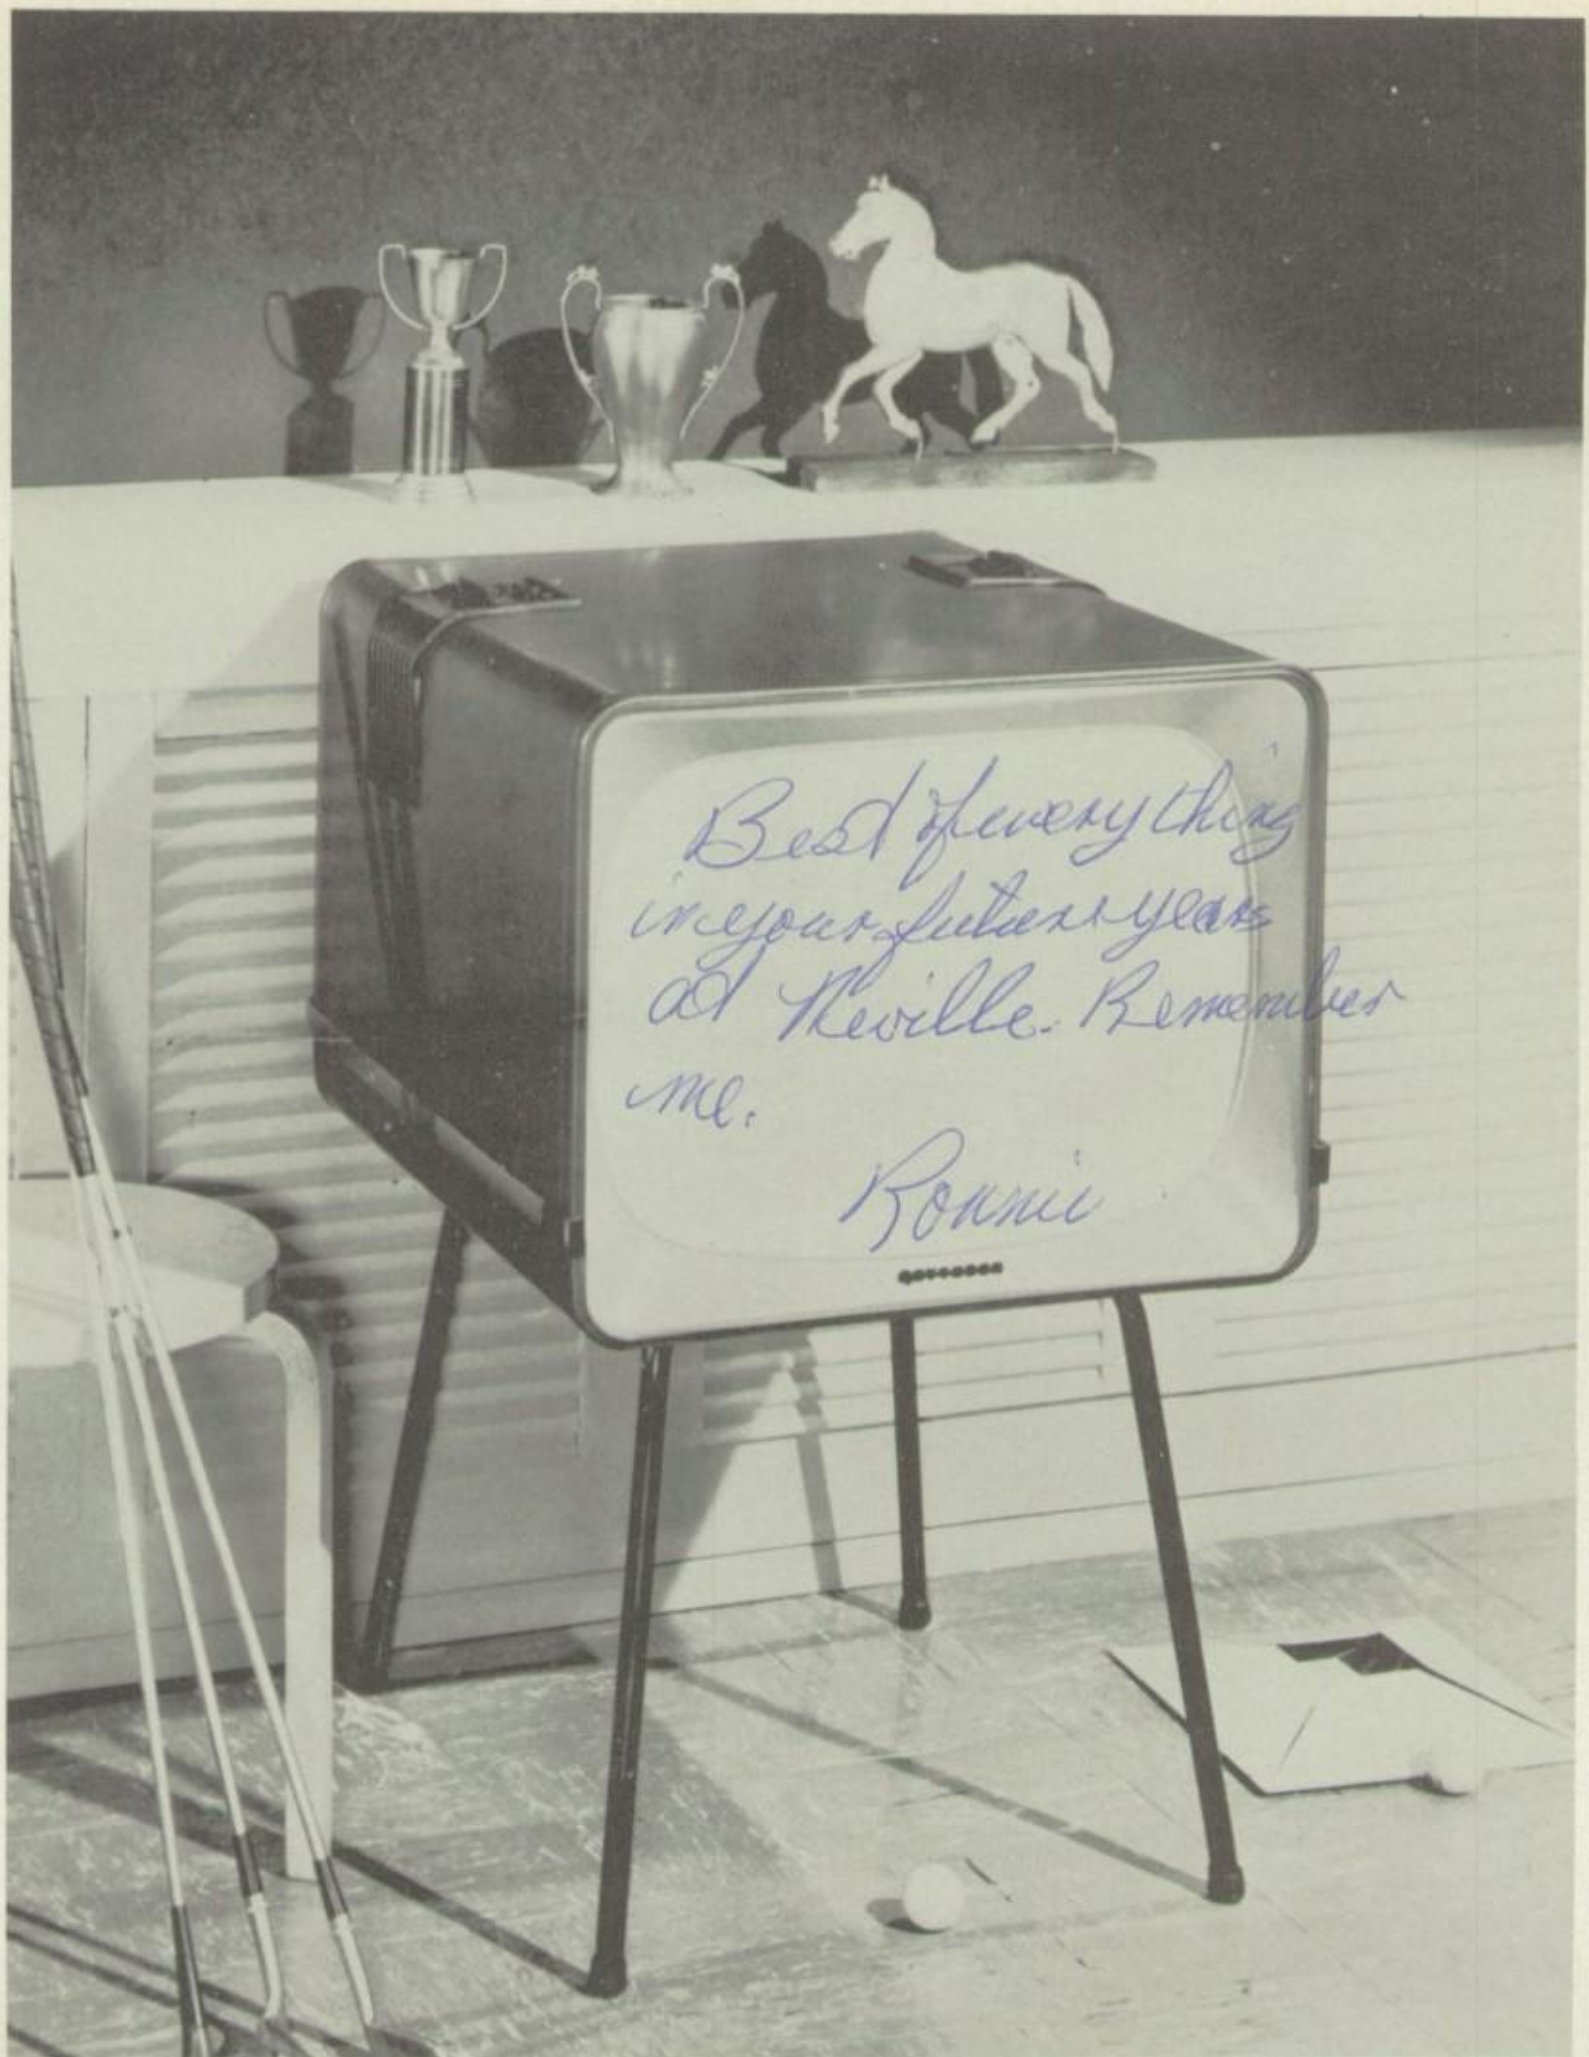 Best of everything
in your future years
at Neville. Remember
me.
Ronnie